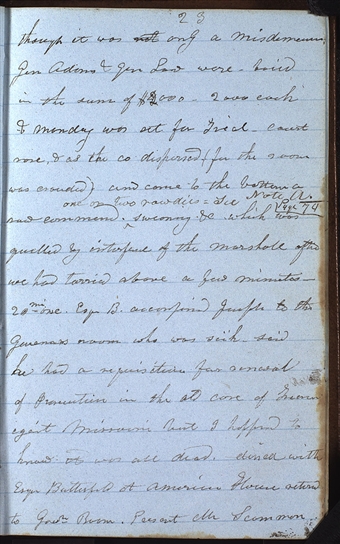 23
though it was not only a misdemeanor
Gen Adams & Gen Law were bailed
in the sum of $2000 - 2000 each
& monday was set for Trial - court
rose, & as the co dispersed (for the room
was crowded) and came to the bottom a
one or two rowdies = See Note L.
row commend. swearing &c which was Page 74
quelled by interfence of the marshall after
we had tarried above a few minutes -
20 mi one. Esqr B. accompind Joseph to the
Govenors room who was sick - said
he had a requisition for renewal
of Prosecution in the old case of Treason
against Missouri but I happend to
know it was all dead. dined with
Esqr Butterfield at American House retired
to Govrs Room. Present Mr Scammon